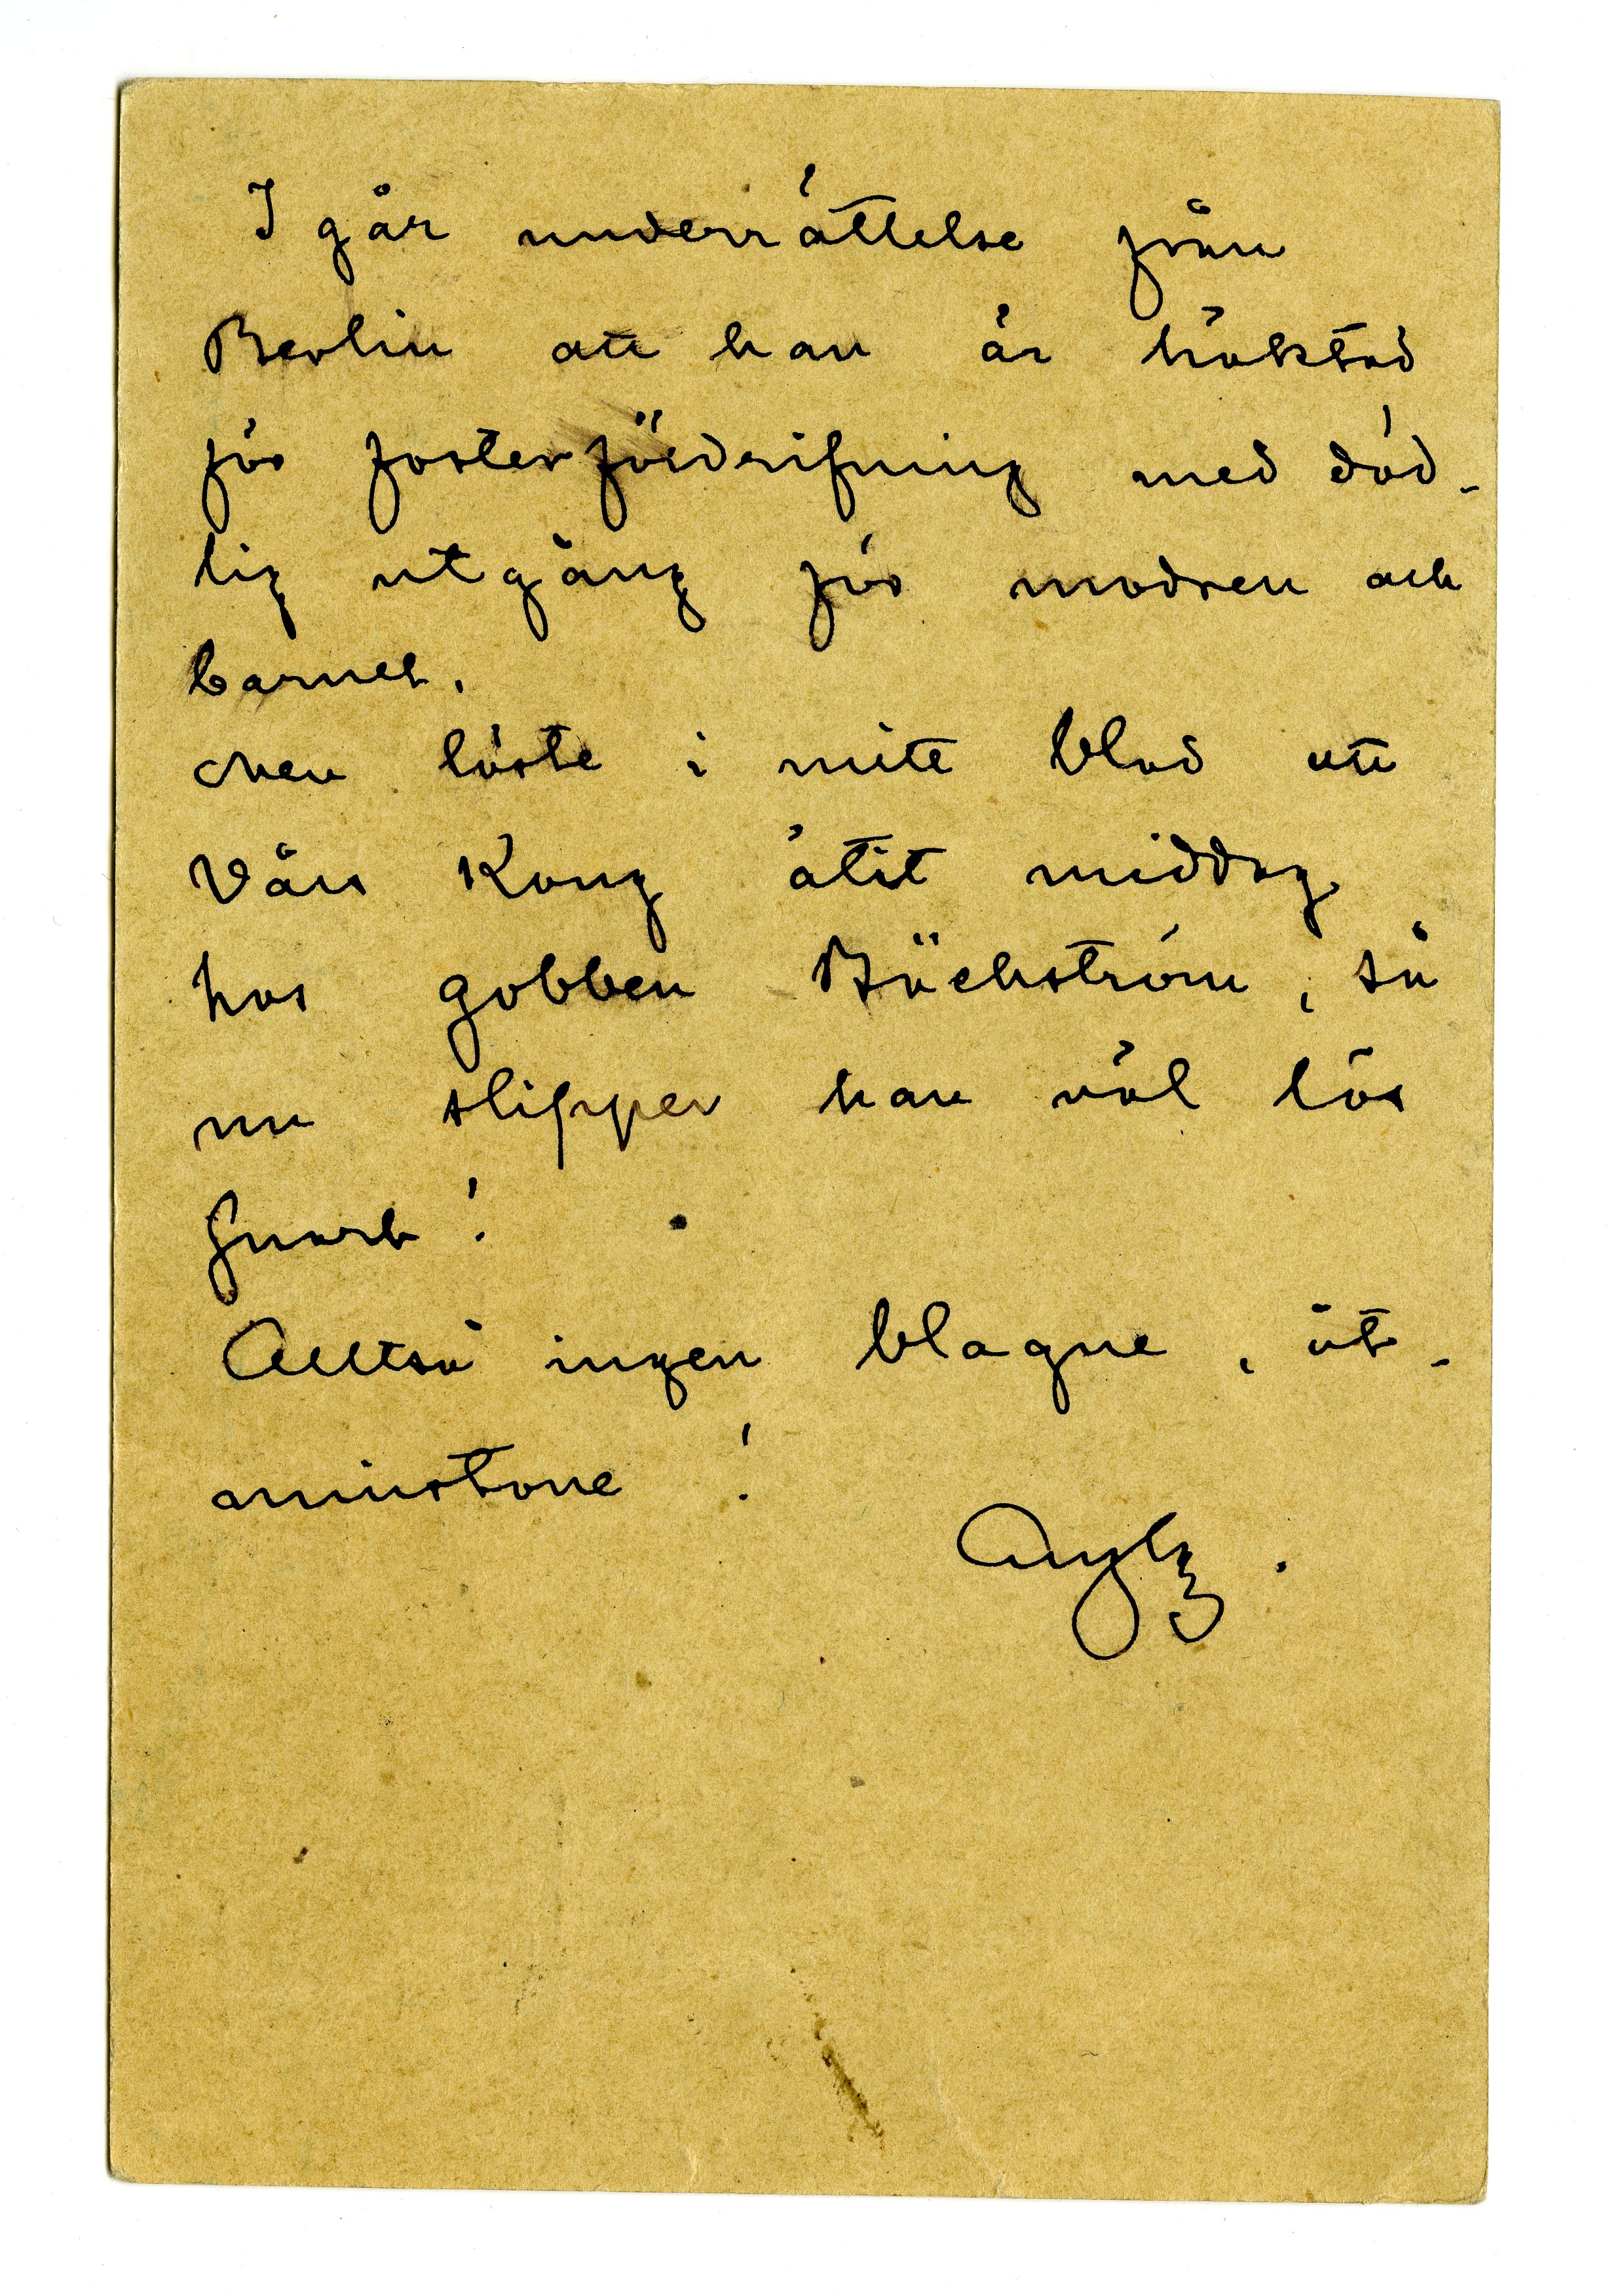 I går underrättelse från
Berlin att han är häktad
för fosterfördrifning med död-
lig utgång för modren och
barnet.
Men läste i mitt blad att
Vår Kong ätit middag
hos gobben Bäckström, så
nu slipper han väl lös
snart!
Alltså ingen blague, åt-
minstone!